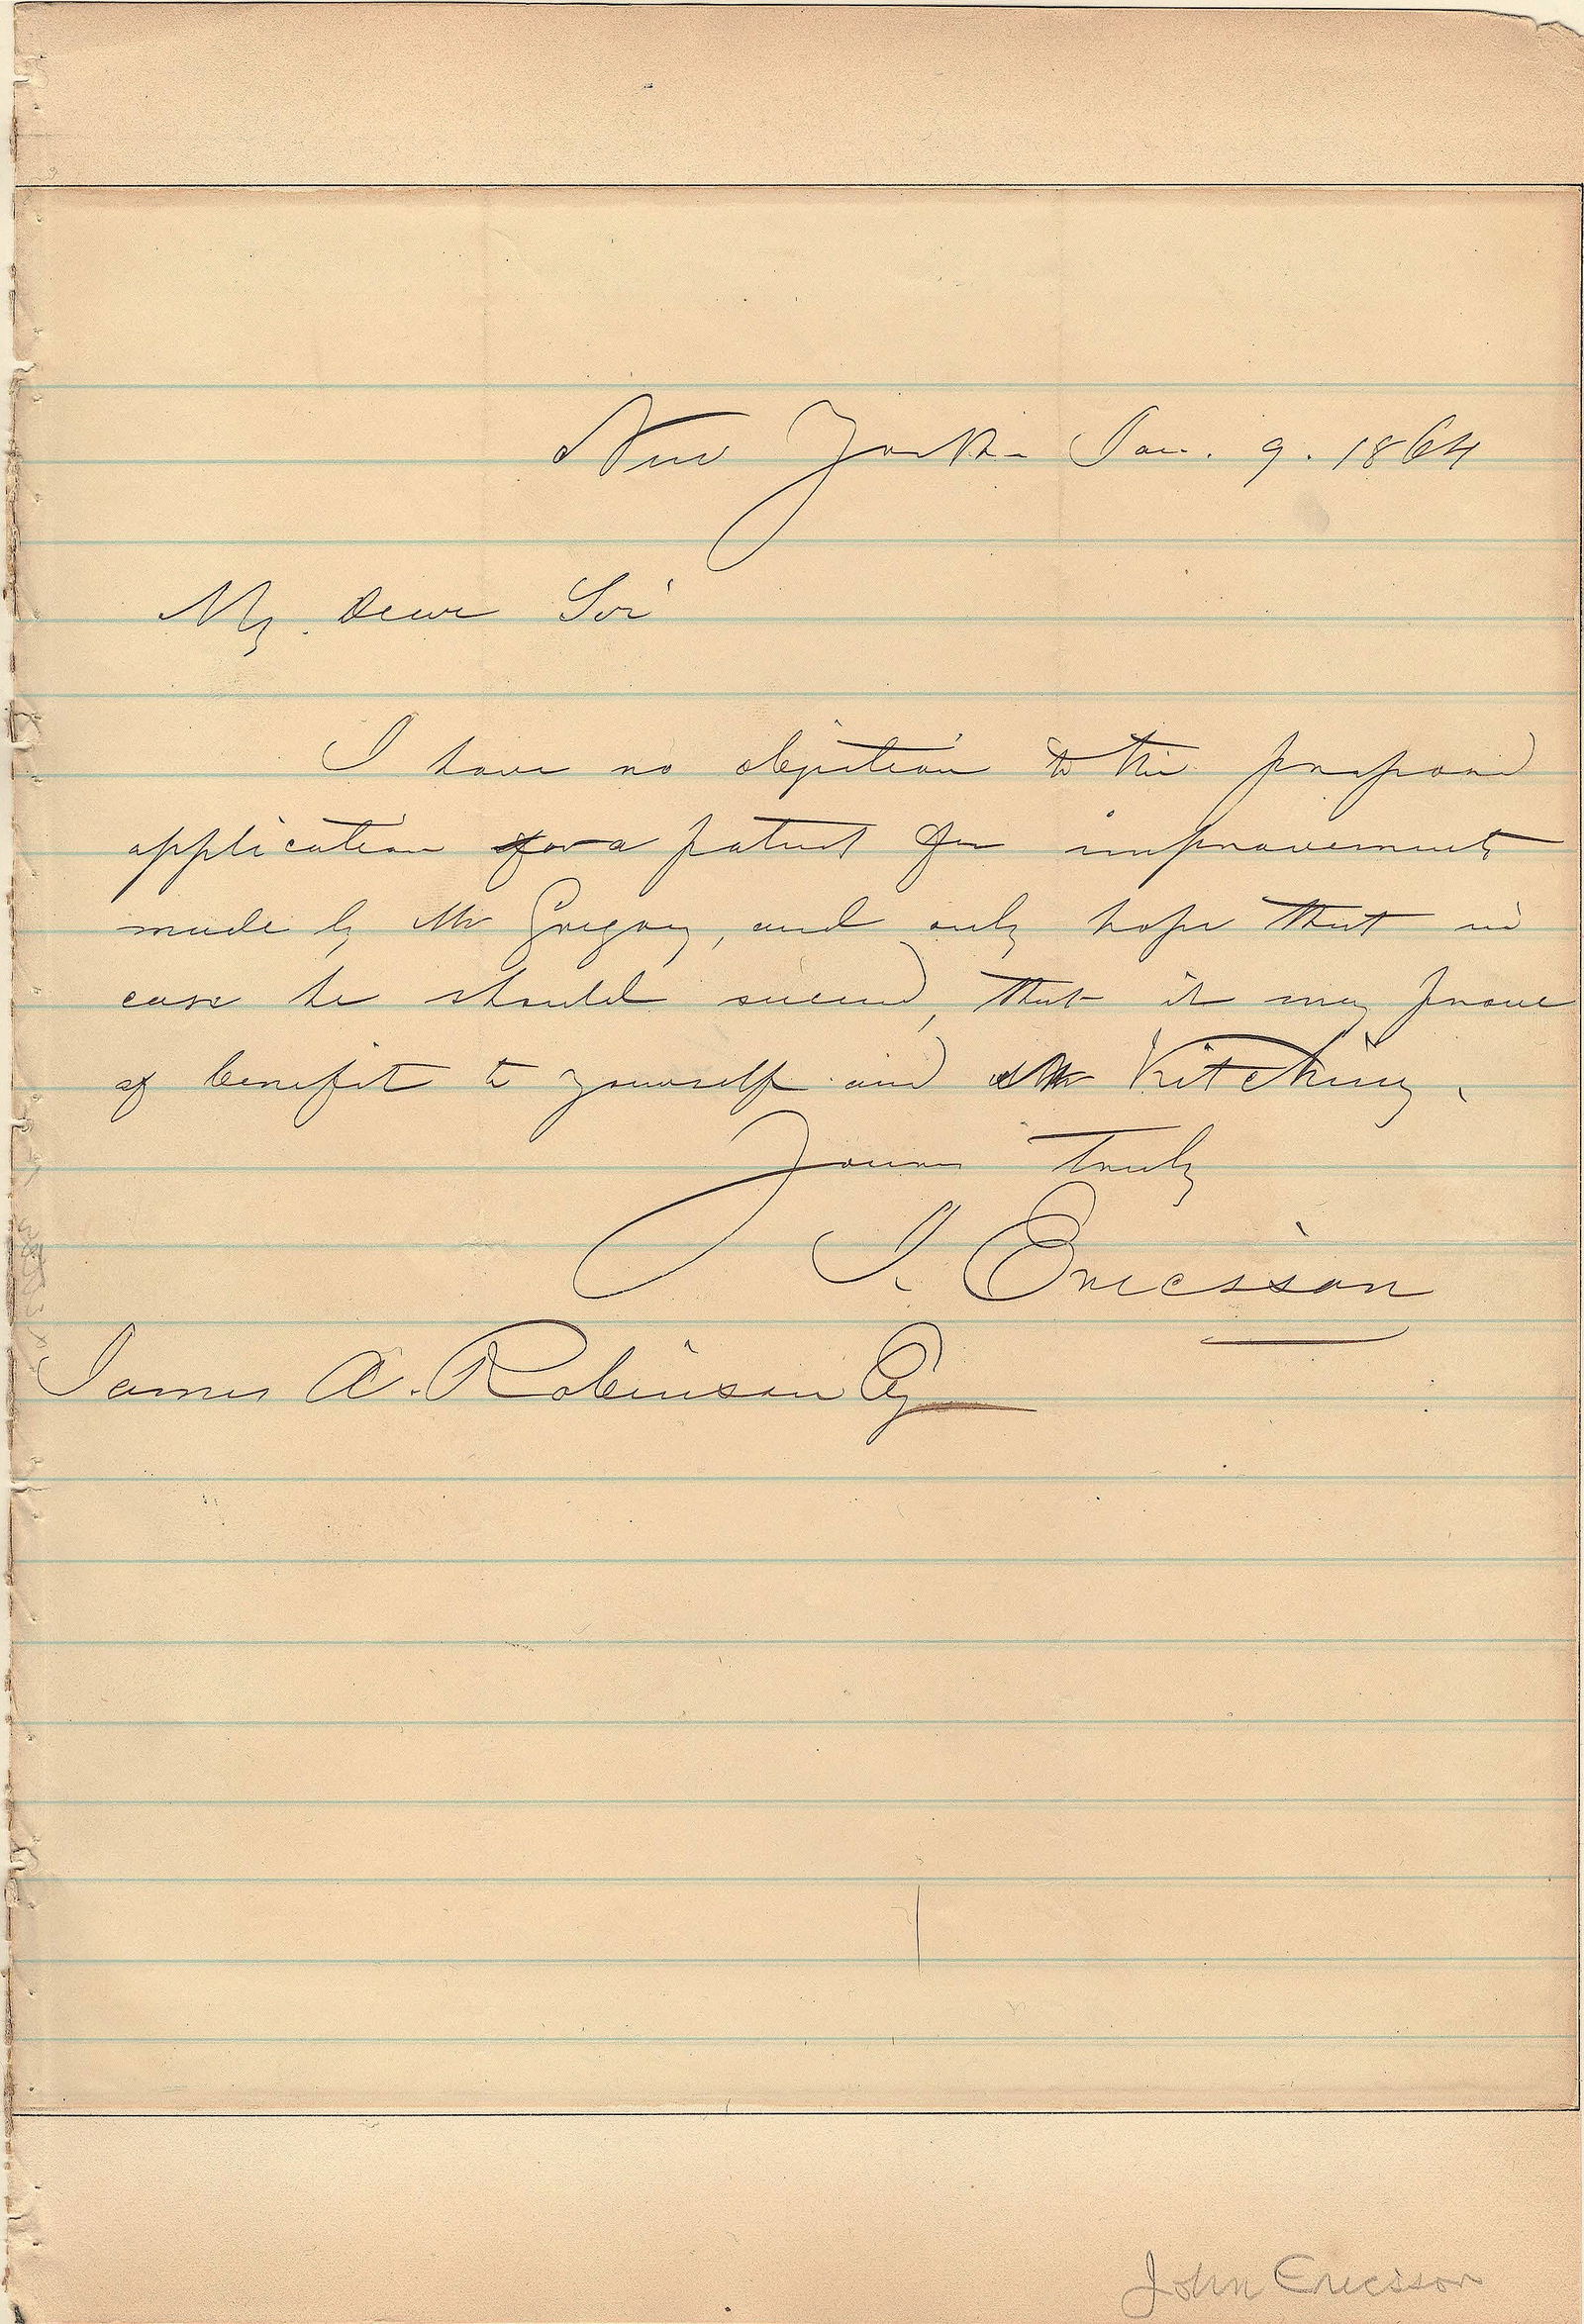 New York Jan. 9. 1864
My Dear Sir
I have no objection to the proposed
application for a patent for improvements
made by Mr Gregory, and only hope that in
case he should succeed, that it may prove
of benefit to yourself and Mr Kitching.
Yours truly
J. Ericsson
James A. Robinson Esq
John Ericsson